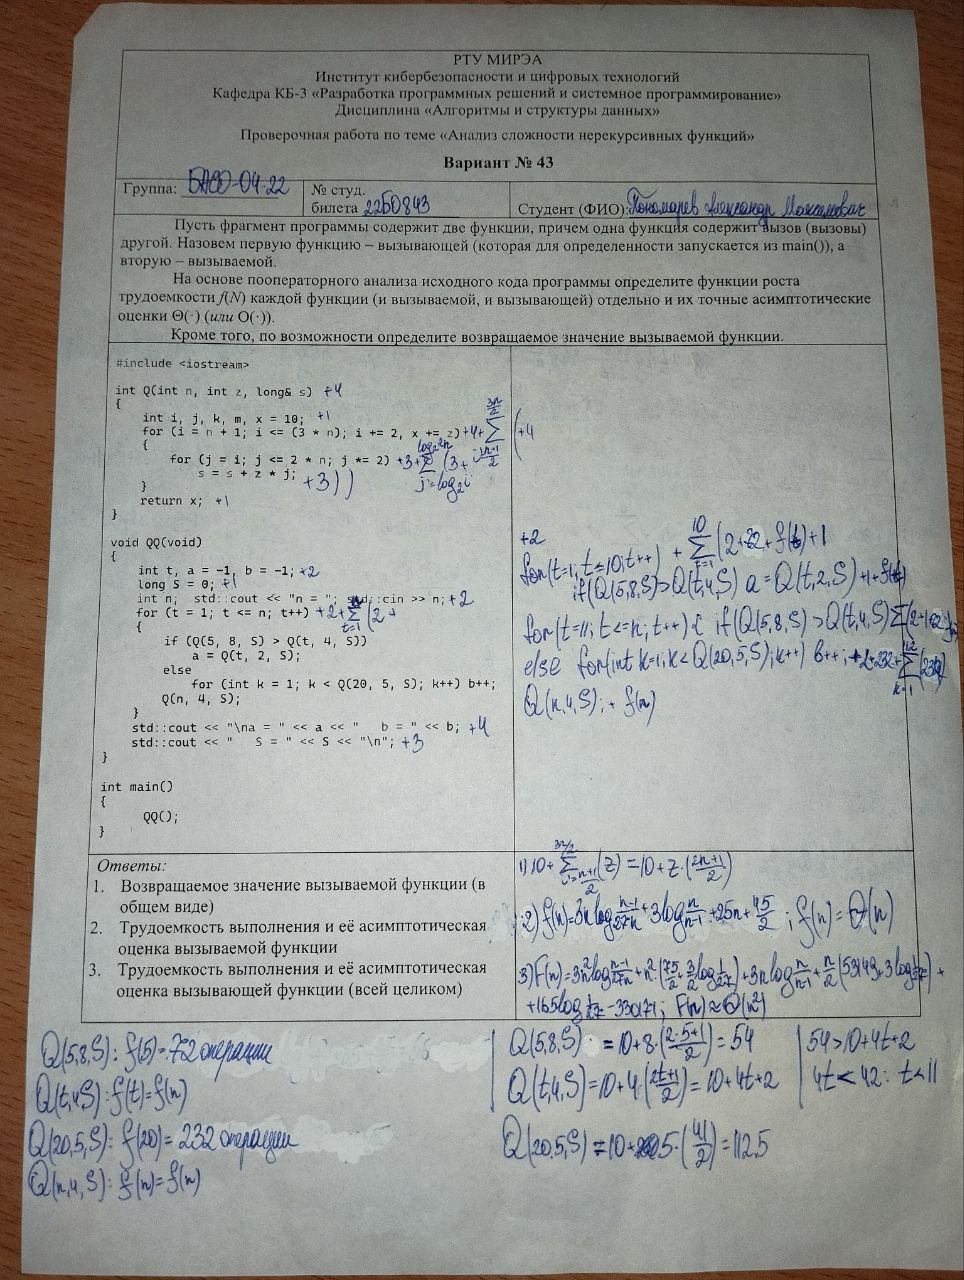 РТУ МИРЭА
Институт кибербезопасности и цифровых технологий
Кафедра КБ-3 «Разработка программных решений и системное программирование»
Дисциплина «Алгоритмы и структуры данных»
Проверочная работа по теме «Анализ сложности нерекурсивных функций»
Вариант № 43
Группа: БАСО-04-22
№ студ. билета 22Б0843
Студент (ФИО): Пономарев Александр Максимович
Пусть фрагмент программы содержит две функции, причем одна функция содержит вызов (вызовы)
другой. Назовем первую функцию – вызывающей (которая для определенности запускается из main()), а
вторую – вызываемой.
На основе пооператорного анализа исходного кода программы определите функции роста
трудоемкости f(N) каждой функции (и вызываемой, и вызывающей) отдельно и их точные асимптотические
оценки Θ(·) (или O(·)).
Кроме того, по возможности определите возвращаемое значение вызываемой функции.
#include <iostream>
int Q(int n, int z, long& s) +4
{
int i, j, k, m, x = 10; +1
for (i = n + 1; i <= (3 * n); i += 2, x += z) +4+ Σ (+4
{
for (j = i; j <= 2 * n; j *= 2) +3+ Σ (3+
s = s + z * j; +3))
}
return x; +1
}
void QQ(void)
{
int t, a = -1, b = -1; +2
long S = 0; +1
int n; std::cout << "n = "; std::cin >> n; +2
for (t = 1; t <= n; t++) +2+ Σ (2+
{
if (Q(5, 8, S) > Q(t, 4, S))
a = Q(t, 2, S);
else
for (int k = 1; k < Q(20, 5, S); k++) b++;
Q(n, 4, S);
}
std::cout << "\na = " << a << " b = " << b; +4
std::cout << " S = " << S << "\n"; +3
}
int main()
{
QQ();
}
+2
for(t=1; t≤10; t++) + Σ
if(Q(5,8,S)>Q(t,4,S) a=Q(t,2,S)
for(t=11; t<=n; t++) { if(Q(5,8,S)>Q(t,4,S)
else for(int k=1; k<Q(20,5,S); k++) b++;
Q(n,4,S); + f(n)
Ответы:
1. Возвращаемое значение вызываемой функции (в
общем виде)
2. Трудоемкость выполнения и её асимптотическая
оценка вызываемой функции
3. Трудоемкость выполнения и её асимптотическая
оценка вызывающей функции (всей целиком)
1) 10+ Σ (z) = 10+z·(2n+1/2)
f(n)=Θ(n)
F(n)=Θ(n²)
Q(5,8,S): f(5)=72 операции
Q(t,4,S): f(t)=f(n)
Q(20,5,S): f(20)=232 операции
Q(n,4,S): f(n)=f(n)
Q(5,8,S) = 10+8·(2·5+1/2)=54
Q(t,4,S)=10+4·(2t+1/2)=10+4t+2
Q(20,5,S)=10+5·(41/2)=112.5
54>10+4t+2
4t<42: t<11